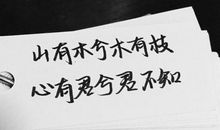 山有木兮木有枝
心有君兮君不知